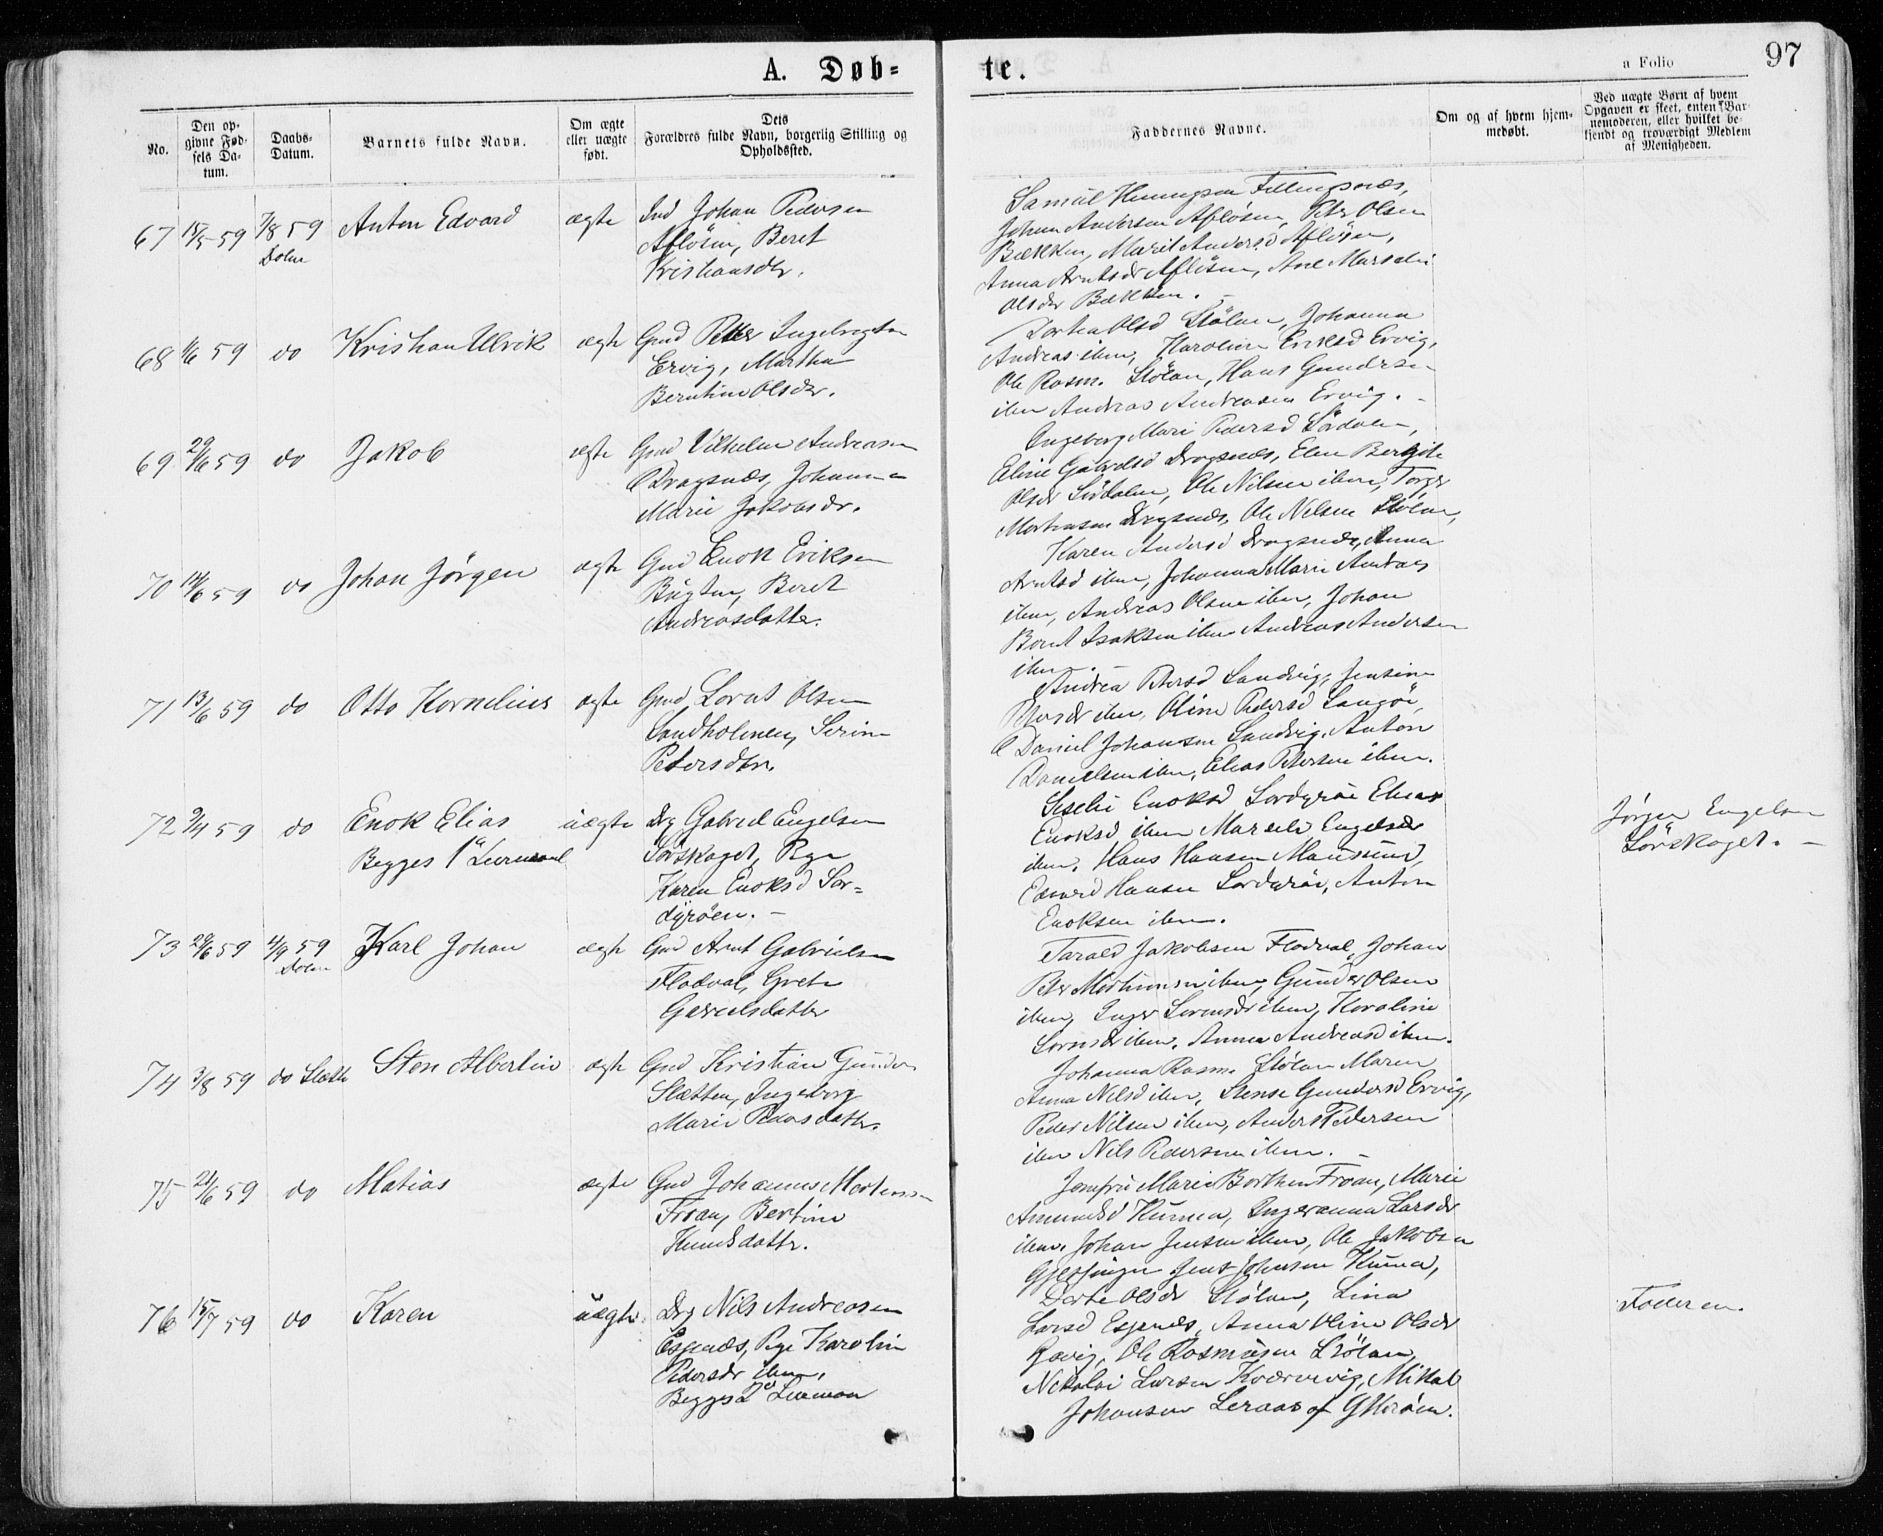 A. Døb-
te.
a Folio
97
No.
Den op-
givne Fød-
sels Da-
tum.
Daabs-
Datum.
Barnets fulde Navn.
Om ægte
eller uægte
født.
Dets
Forældres fulde Navn, borgerlig Stilling og
Opholdssted.
Faddernes Navne.
Om og af hvem hjem-
medøbt.
Ved uægte Børn af hvem
Opgaven er skeet, enten Bar-
nemoderen, eller hvilket be-
kjendt og troværdigt Medlem
af Menigheden.
67 15/5 59 7/8 59 Anton Edvard ægte Ind Johan Pedersen
Dolm
Afløsen, Beret
Kristiansdtr.
Samuel Henningsen Fillingsnæs,
Johan Andersen Afløsen, Peter Olsen
Bækken, Marit Andersd Afløsen,
Anna Arntsdr Afløsen, Ane Marselie
Olsdr Bækken. -
68 1/6 59 do Kristian Ulrik ægte Gmd Petter Ingebrigtsen
Ervig, Martha
Berntine Olsdtr.
Dorthea Olsd Stølan, Johanna
Andreas ibm, Karoline Eriksd Ervig,
Ole Rasm. Stølan, Hans Gunders
ibm Andreas Andreasen Ervig. -
69 29/6 59 do Jakob ægte Gmd Vilhelm Andreasen
Dragsnæs, Johanna
Marie Jakobsdr.
Ingeborg Marie Pedersd Sørdalen,
Eline Gabrielsd Dragsnæs, Elen Bergite
Olsdr Sørdalen, Ole Nilsen ibm, Torger
Mortensen Dragsnæs, Ole Nilsen Stølan,
70 14/6 59 do Johan Jørgen ægte Gmd Enok Eriksen
Bugten, Beret
Andreasdatter.
Karen Andersd Dragsnæs, Anna
Arntsd ibm, Johanna Marie Andreas
ibm, Andreas Olsen ibm, Johan
Bernt Isaksen ibm Andreas Andersen
ibm. -
71 13/6 59 do Otto Kornelius ægte Gmd Lorns Olsen
Sandholmen, Serine
Petersdtr.
Andrea Petersd Sandvig, Jensine
Petersdr ibm, Oline Pedersd Langøi,
Daniel Johansen Sandvig, Anton
Danielsen ibm, Elias Petersen ibm.
72 9/4 59 do Enok Elias uægte Drg Gabriel Engelsen
Begges 1ste Leiermaal
Sørskaget, Pge
Karen Enoksd Sor-
dyrøen. -
Sisselie Enoksd Sordyrøe Elias
Enoksd ibm Marselie Engelsdr
ibm, Hans Hansen Mausund,
Edvard Hansen Sordyrøe, Anton
Enoksen ibm.
Jørgen Engelsen
Sørskaget. -
73 29/6 59 4/9 59 Karl Johan ægte Gmd Arnt Gabrielsen
Dolm
Flatval, Grete
Gabrielsdatter
Tarald Jakobsen Flatval, Johan
Peter Mortensen ibm, Gunder Olsen
ibm, Inger Lornsdr ibm, Karoline
Lornsd ibm, Anna Andreasd ibm.
74 3/8 59 do Slætt Sten Albertine ægte Gmd Kristian Gunders
Slætten, Ingeborg
Marie Pedersdatter.
Johanna Rasm. Stølan Maren
Anna Nilsd ibm, Stense Gundersd Ervig,
Peder Nilsen ibm, Anders Pedersen
ibm Nils Pedersen ibm. -
75 21/6 59 do Matias ægte Gmd Johannes Mortensen
Froan, Bertine
Knudsdatter.
Jomfru Marie Borthen Froan, Marie
Amundsd Kunna, Ingeranna Larsdr
ibm, Johan Jensen ibm, Ole Jakobsen
Gjessingen Jens Johnsen Kunna,
76 15/7 59 do Karen uægte. Drg Nils Andreasen
Espnæs, Pge Karolin
Pedersdr ibm,
Begges 2det Leierm
Dorte Olsdr Stølan, Lina
Larsd Espnæs, Anna Oline Olsdr
Gævig, Ole Rasmusen Stølan
Nikolai Larsen Kværnvig, Mikal
Johansen Leraas af G Hitrøen.
Faderen.